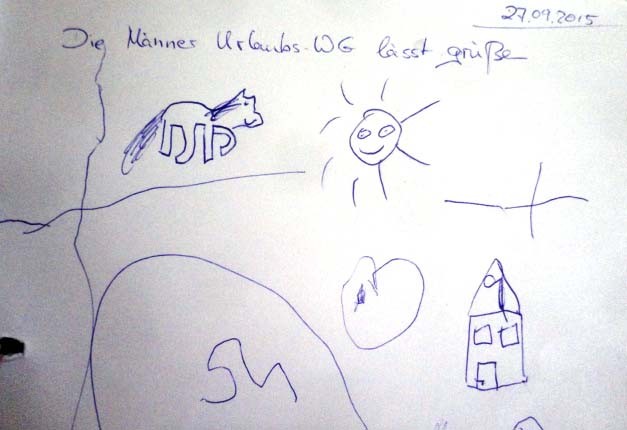 27.09.2015
Die Männer Urlaubs-WG lässt grüßen